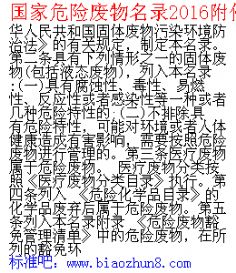 国家危险废物名录2016附件
华人民共和国固体废物污染环境防
治法》的有关规定，制定本名录。
第二条具有下列情形之一的固体废
物(包括液态废物)，列入本名录
:(一)具有腐蚀性、毒性、易燃
性、反应性或者感染性等一种或者
几种危险特性的;(二)不排除具
有危险特性，可能对环境或者人体
健康造成有害影响，需要按照危险
废物进行管理的。第三条医疗废物
属于危险废物。医疗废物分类按
照《医疗废物分类目录》执行。第
四条列入《危险化学品目录》的
化学品废弃后属于危险废物。第五
条列入本名录附录《危险废物豁
免管理清单》中的危险废物，在所
列的豁免环
标准吧:www.biaozhun8.com